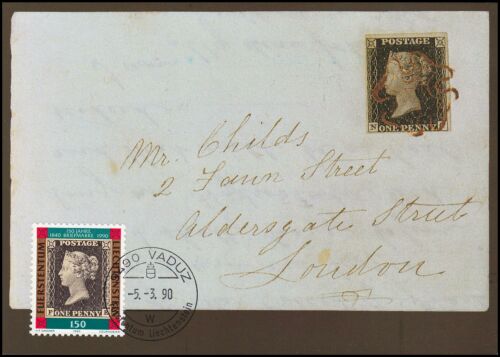 POSTAGE
N
ONE PENNY
Mr. Childs
2 Fawn Street
Aldersgate Street
London
150 JAHRE
1840 BRIEFMARKE 1990
LIECHTENSTEIN
LIECHTENSTEIN
POSTAGE
P
ONE PENNY
150
9490 VADUZ
-5.-3.90
W
Fürstentum Liechtenstein